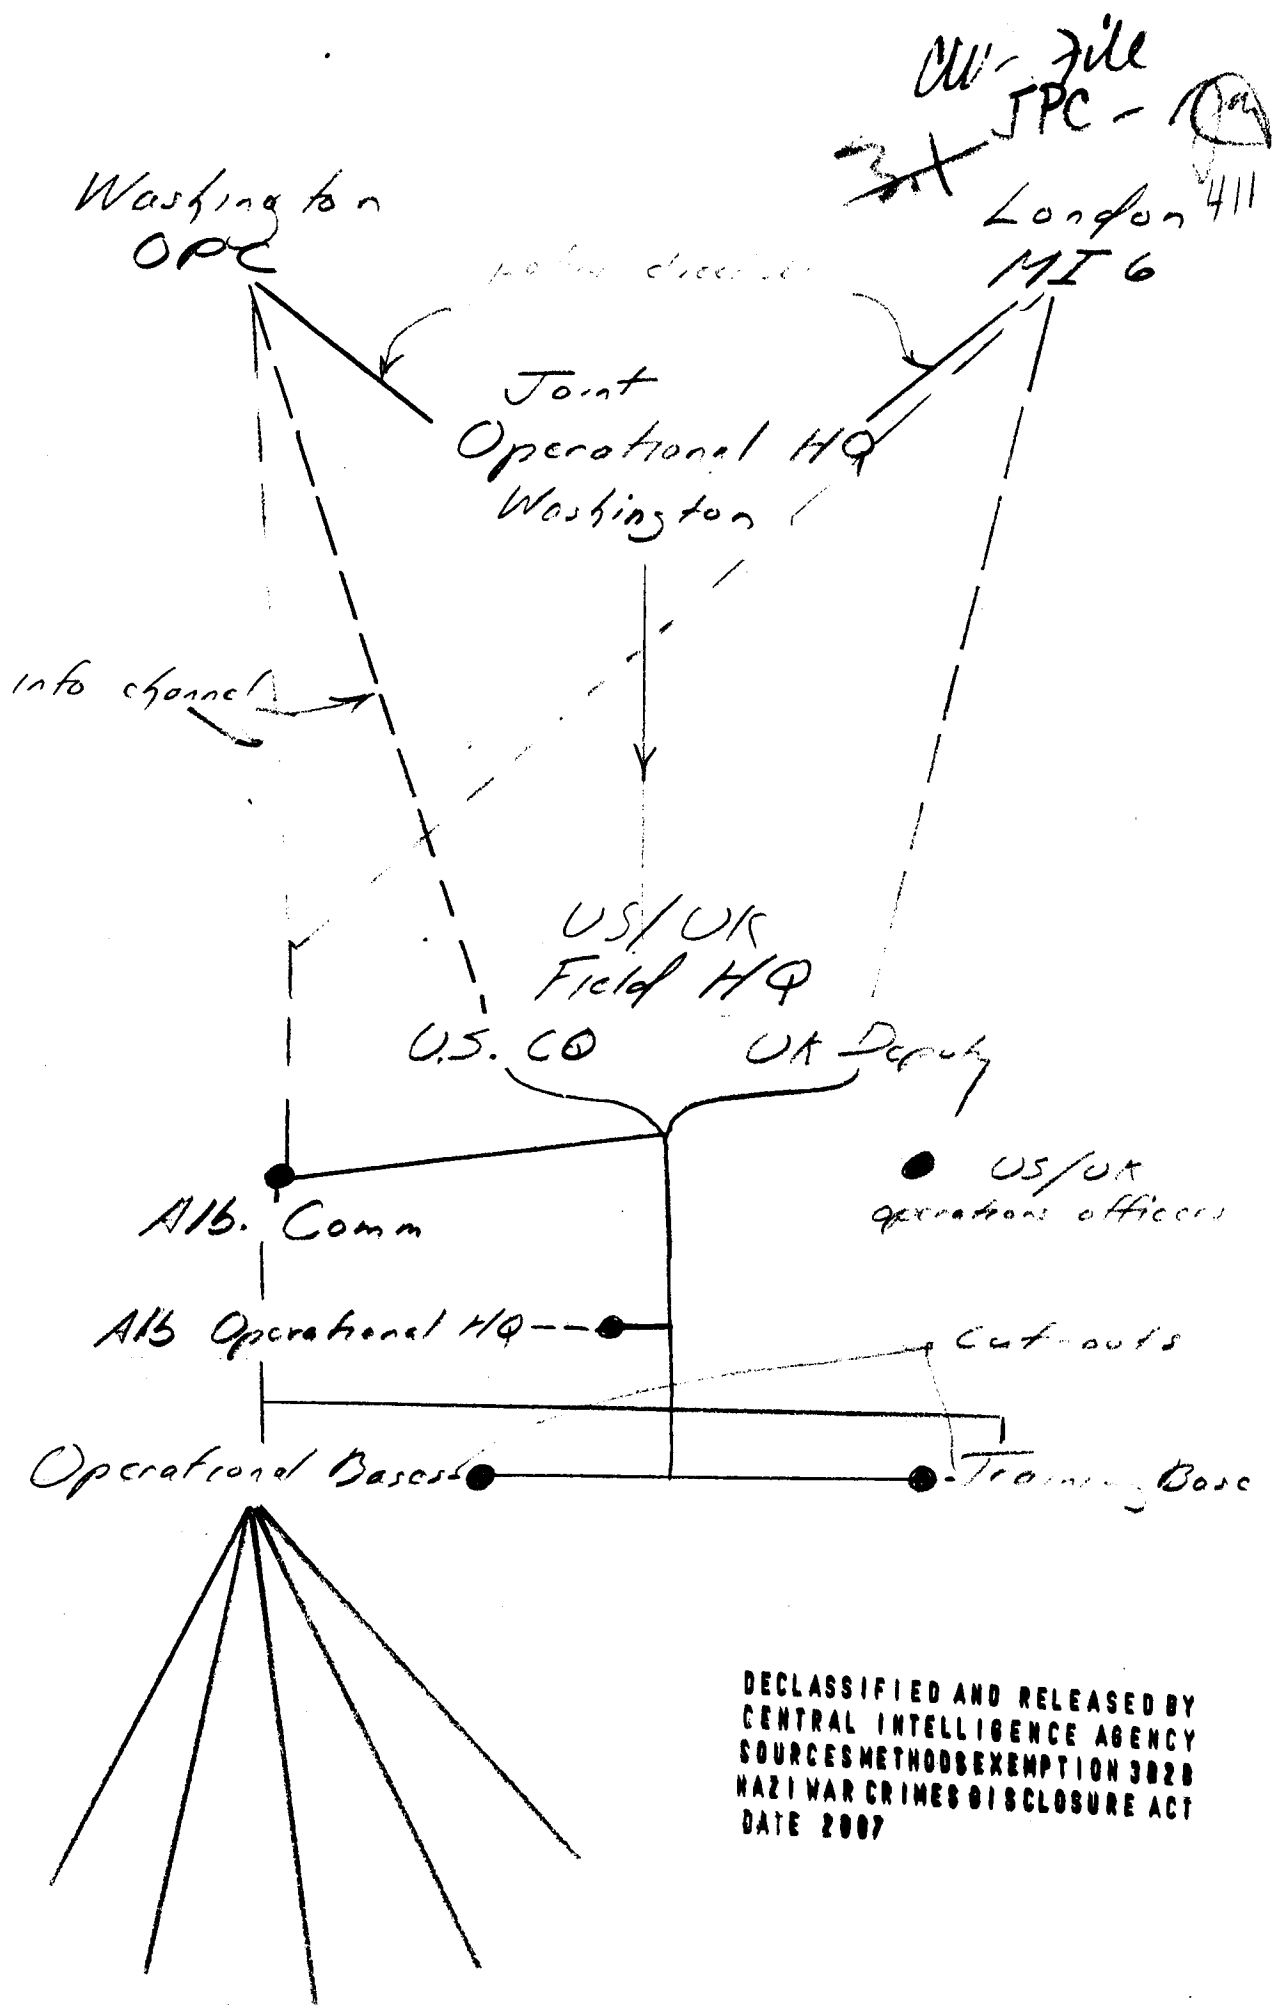 File
JPC -
411
Washington
OPC
London
MI 6
Joint
Operational HQ
Washington
info channel
US/UK
Field HQ
U.S. CO
UK Deputy
US/UK
operations officers
Alb. Comm
Alb Operational HQ
Cut-outs
Operational Bases
Training Base
DECLASSIFIED AND RELEASED BY
CENTRAL INTELLIGENCE AGENCY
SOURCESMETHODSEXEMPTION 3B2B
NAZI WAR CRIMES DISCLOSURE ACT
DATE 2007